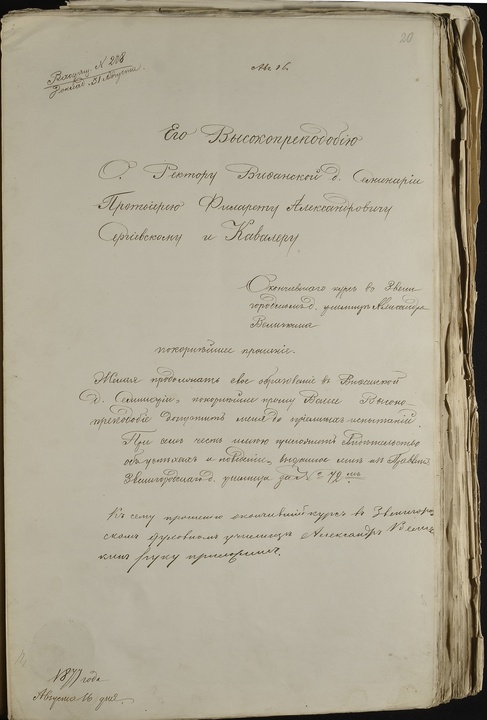 20
Входящ. № 208
31 Августа
Его Высокопреподобію
О. Ректору Виѳанской д. Семинаріи
Протоіерею Филарету Александровичу
Сергіевскому и Кавалеру
Окончившаго курсъ въ Звени
городскомъ д. училищѣ Александра
покорнѣйшее прошеніе.
Желая продолжать свое образованіе въ Виѳанской
д. Семинаріи, покорнѣйше прошу Ваше Высоко-
преподобіе допустить меня до пріемныхъ испытаній.
При семъ честь имѣю приложить Свидѣтельство
объ успѣхахъ и поведеніи, выданное мнѣ изъ Правленія
Звенигородскаго д. училища за № 72 мъ
Къ сему прошенію окончившій курсъ въ Звенигород-
скомъ духовномъ училищѣ Александръ
руку приложилъ.
1877 года
Августа 16 дня.